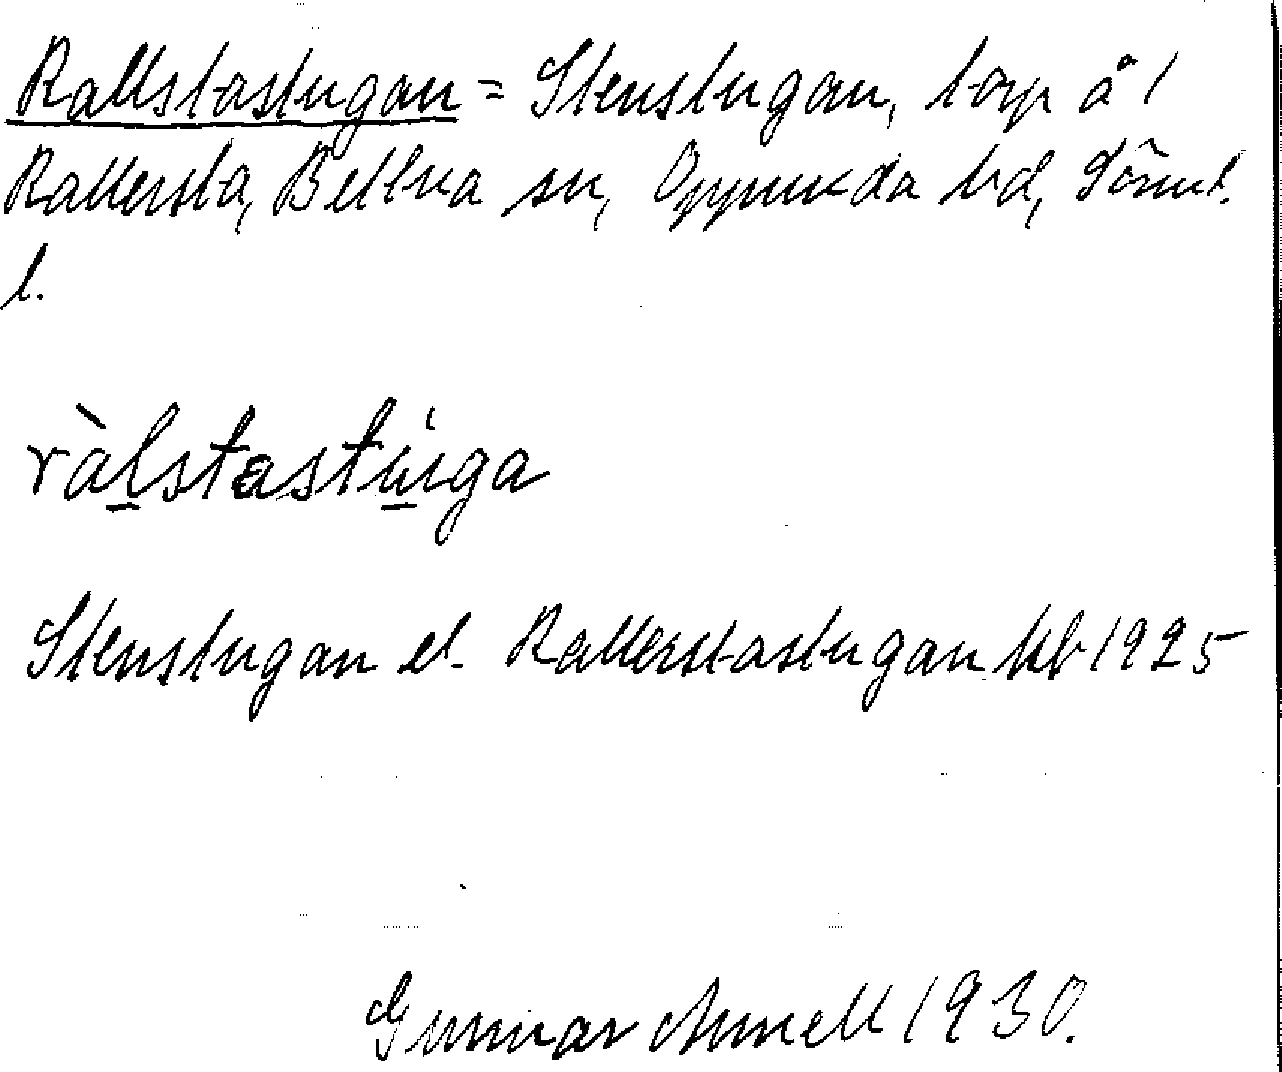 Rallstastugan = Stenstugan, torp å 1
Rallersta, Bettna sn, Oppunda hd, Söml.
l.
ràlstastúga
Stenstugan el. Rallerstastugan kb 1925
Gunnar Amnell 1930.